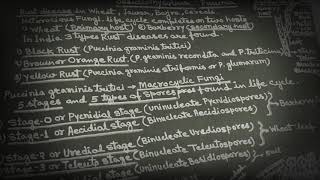 Rust disease in Wheat, Jawar, Bajra, Cereals
Heteroecious Fungi. life cycle completes on two hosts
① Wheat (Primary host) ② Barberry (Secondary host)
In India 3 types Rust diseases are found.
1) Black Rust (Puccinia graminis tritici)
2) Brown or Orange Rust (P. graminis recondita and P. triticina)
3) Yellow Rust (Puccinia striiformis or P. glumarum)
Puccinia graminis tritici → Macrocyclic Fungi
5 stages and 5 types of Spores found in life cycle.
Stage-0 or Pycnidial Stage (Uninucleate Pycnidiospores)
Stage-1 or Aecidial Stage (Binucleate Aecidiospores) → Barberry
Stage-2 or Uredial Stage (Binucleate Urediospores)
Stage-3 or Teleuto Stage (Binucleate Teleutospores) → Wheat
(Uninucleate Basidiospores) → Soil